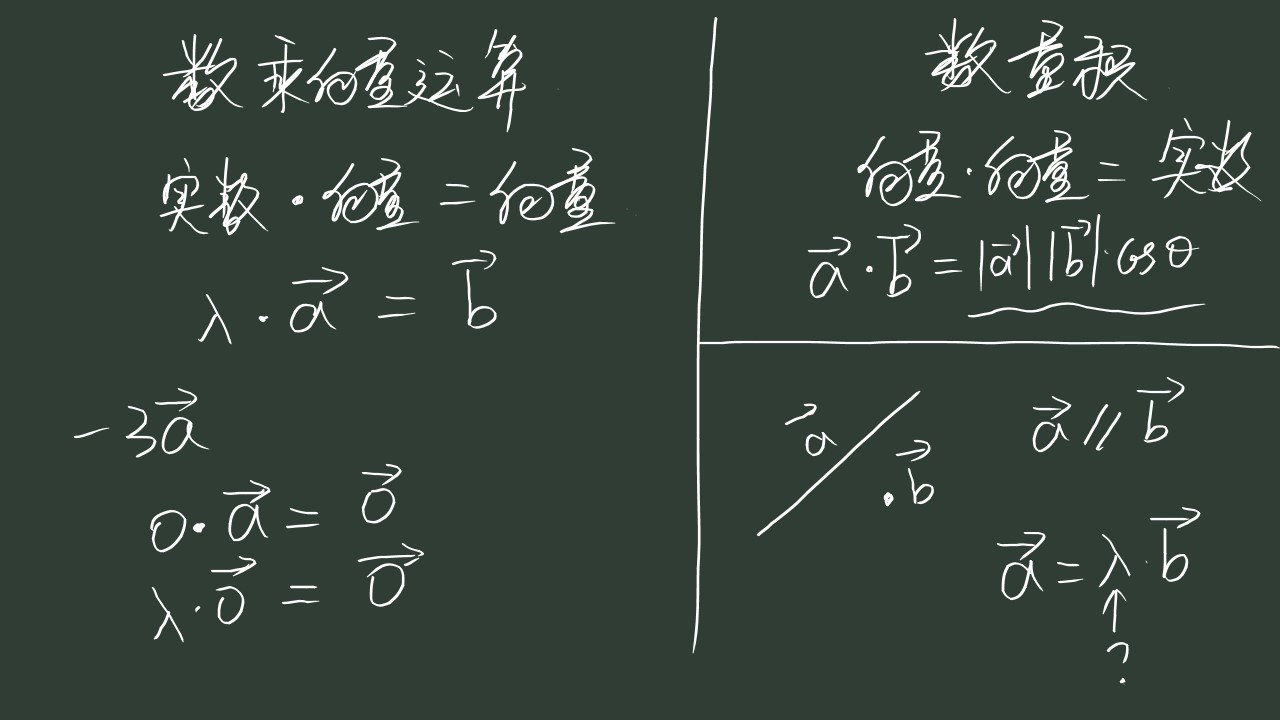 数乘向量运算
实数·向量=向量
λ·a⃗ = b⃗
-3a⃗
0·a⃗ = 0⃗
λ·0⃗ = 0⃗
数量积
向量·向量=实数
a⃗·b⃗=|a⃗||b⃗|·cosθ
a⃗
b⃗
a⃗ // b⃗
a⃗=λ·b⃗
↑
?